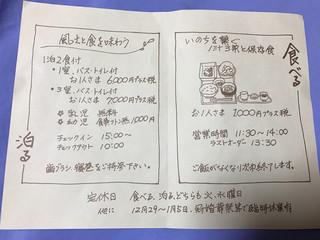 風土と食を味わう
1泊2食付
・1室、バス・トイレ付
お1人さま 6000円プラス税
・3室、バス・トイレ付
お1人さま 7000円プラス税
☆乳児 無料
☆幼児 食事フトン無 1000円
チェックイン 15:00～
チェックアウト 10:00
歯ブラシ、寝巻をご持参下さい。
泊る
いのちを繋ぐ
1汁3菜と保存食
お1人さま 1000円プラス税
営業時間 11:30-14:00
ラストオーダー 13:30
ご飯がなくなり次第終了します。
食べる
定休日 食べる、泊る、どちらも火、水曜日
他に 12月29～1月5日、冠婚葬祭等で臨時休業有